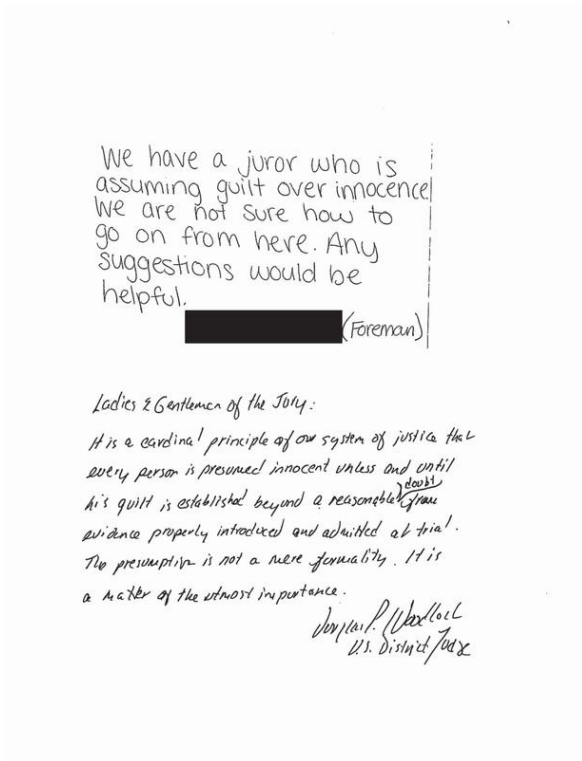 We have a juror who is
assuming guilt over innocence
We are not sure how to
go on from here. Any
suggestions would be
helpful.
(Foreman)
Ladies & Gentlemen of the Jury:
It is a cardinal principle of our system of justice that
every person is presumed innocent unless and until
his guilt is established beyond a reasonable doubt from
evidence properly introduced and admitted at trial.
The presumption is not a mere formality. It is
a matter of the utmost importance.
Douglas P. Woodlock
U.S. District Judge